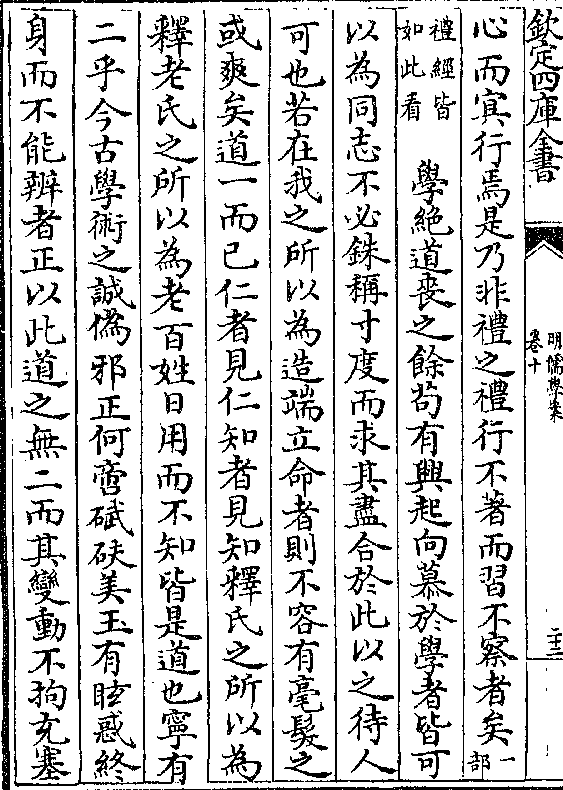 欽定四庫全書
明儒學案
卷十
二十三
心而㝠行焉是乃非禮之禮行不著而習不察者矣一部
禮經皆如此看　學絶道喪之餘苟有興起向慕於學者皆可
以為同志不必銖稱寸度而求其盡合於此以之待人
可也若在我之所以為造端立命者則不容有毫髮之
或爽矣道一而已仁者見仁知者見知釋氏之所以為
釋老氏之所以為老百姓日用而不知皆是道也寧有
二乎今古學術之誠偽邪正何啻碔砆美玉有眩惑終
身而不能辨者正以此道之無二而其變動不拘充塞